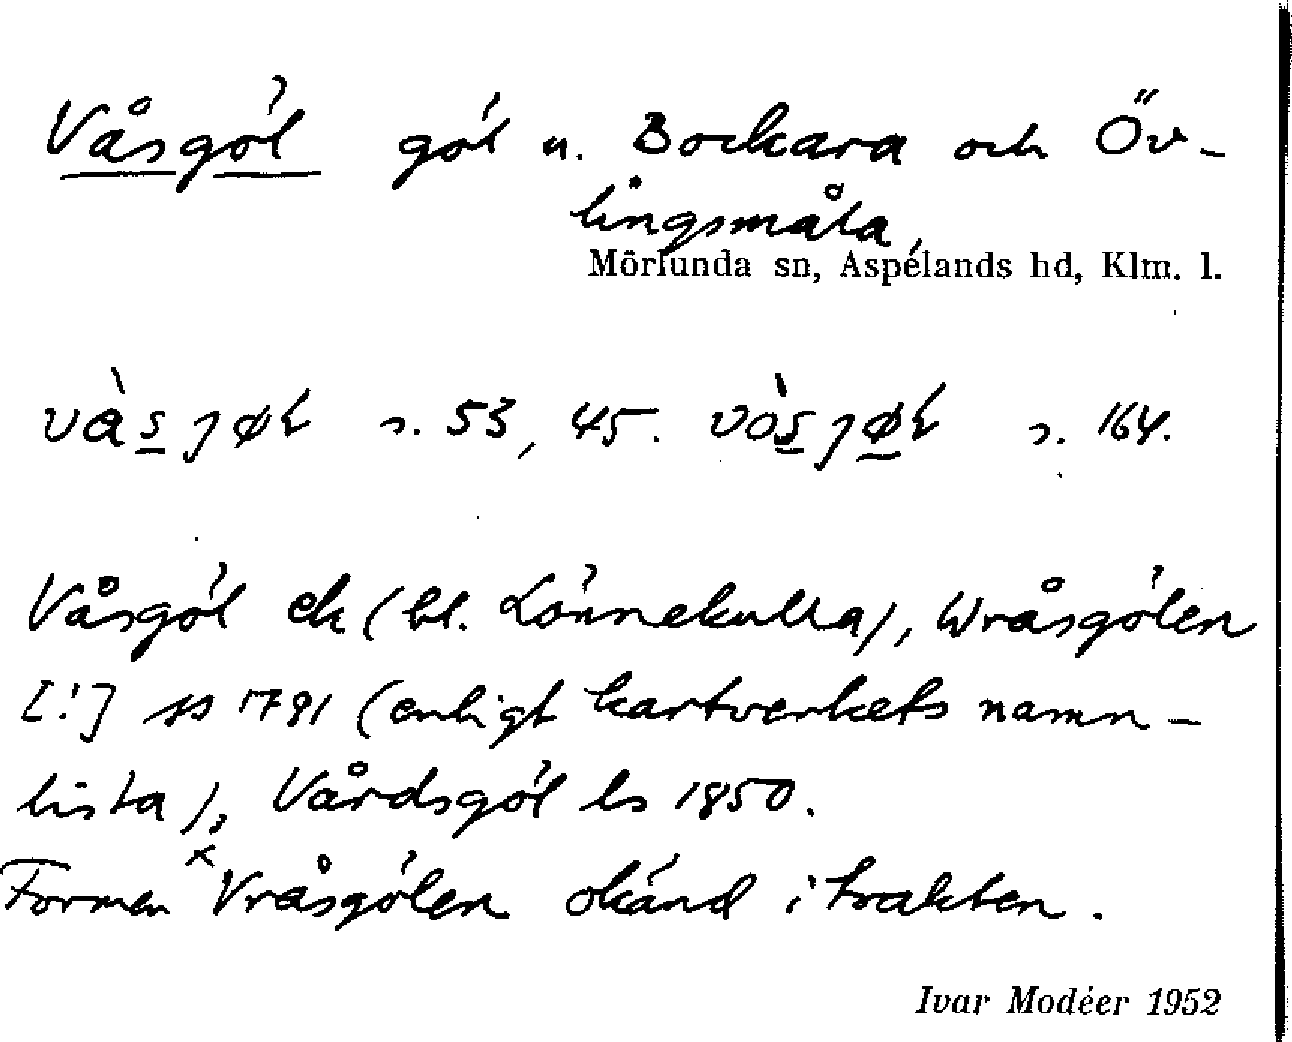 Våsgöl göl u. Bockara och Öv-
lingsmåla,
Mörlunda sn, Aspelands hd, Klm. l.
s. 53, 45. s. 164.
Våsgöl ek (bl. Lönnekulla), Wråsgölen
[!] ss 1791 (enligt kartverkets namn-
lista), Vårdsgöl ls 1850.
Formen ˣVråsgölen okänd i trakten.
Ivar Modéer 1952